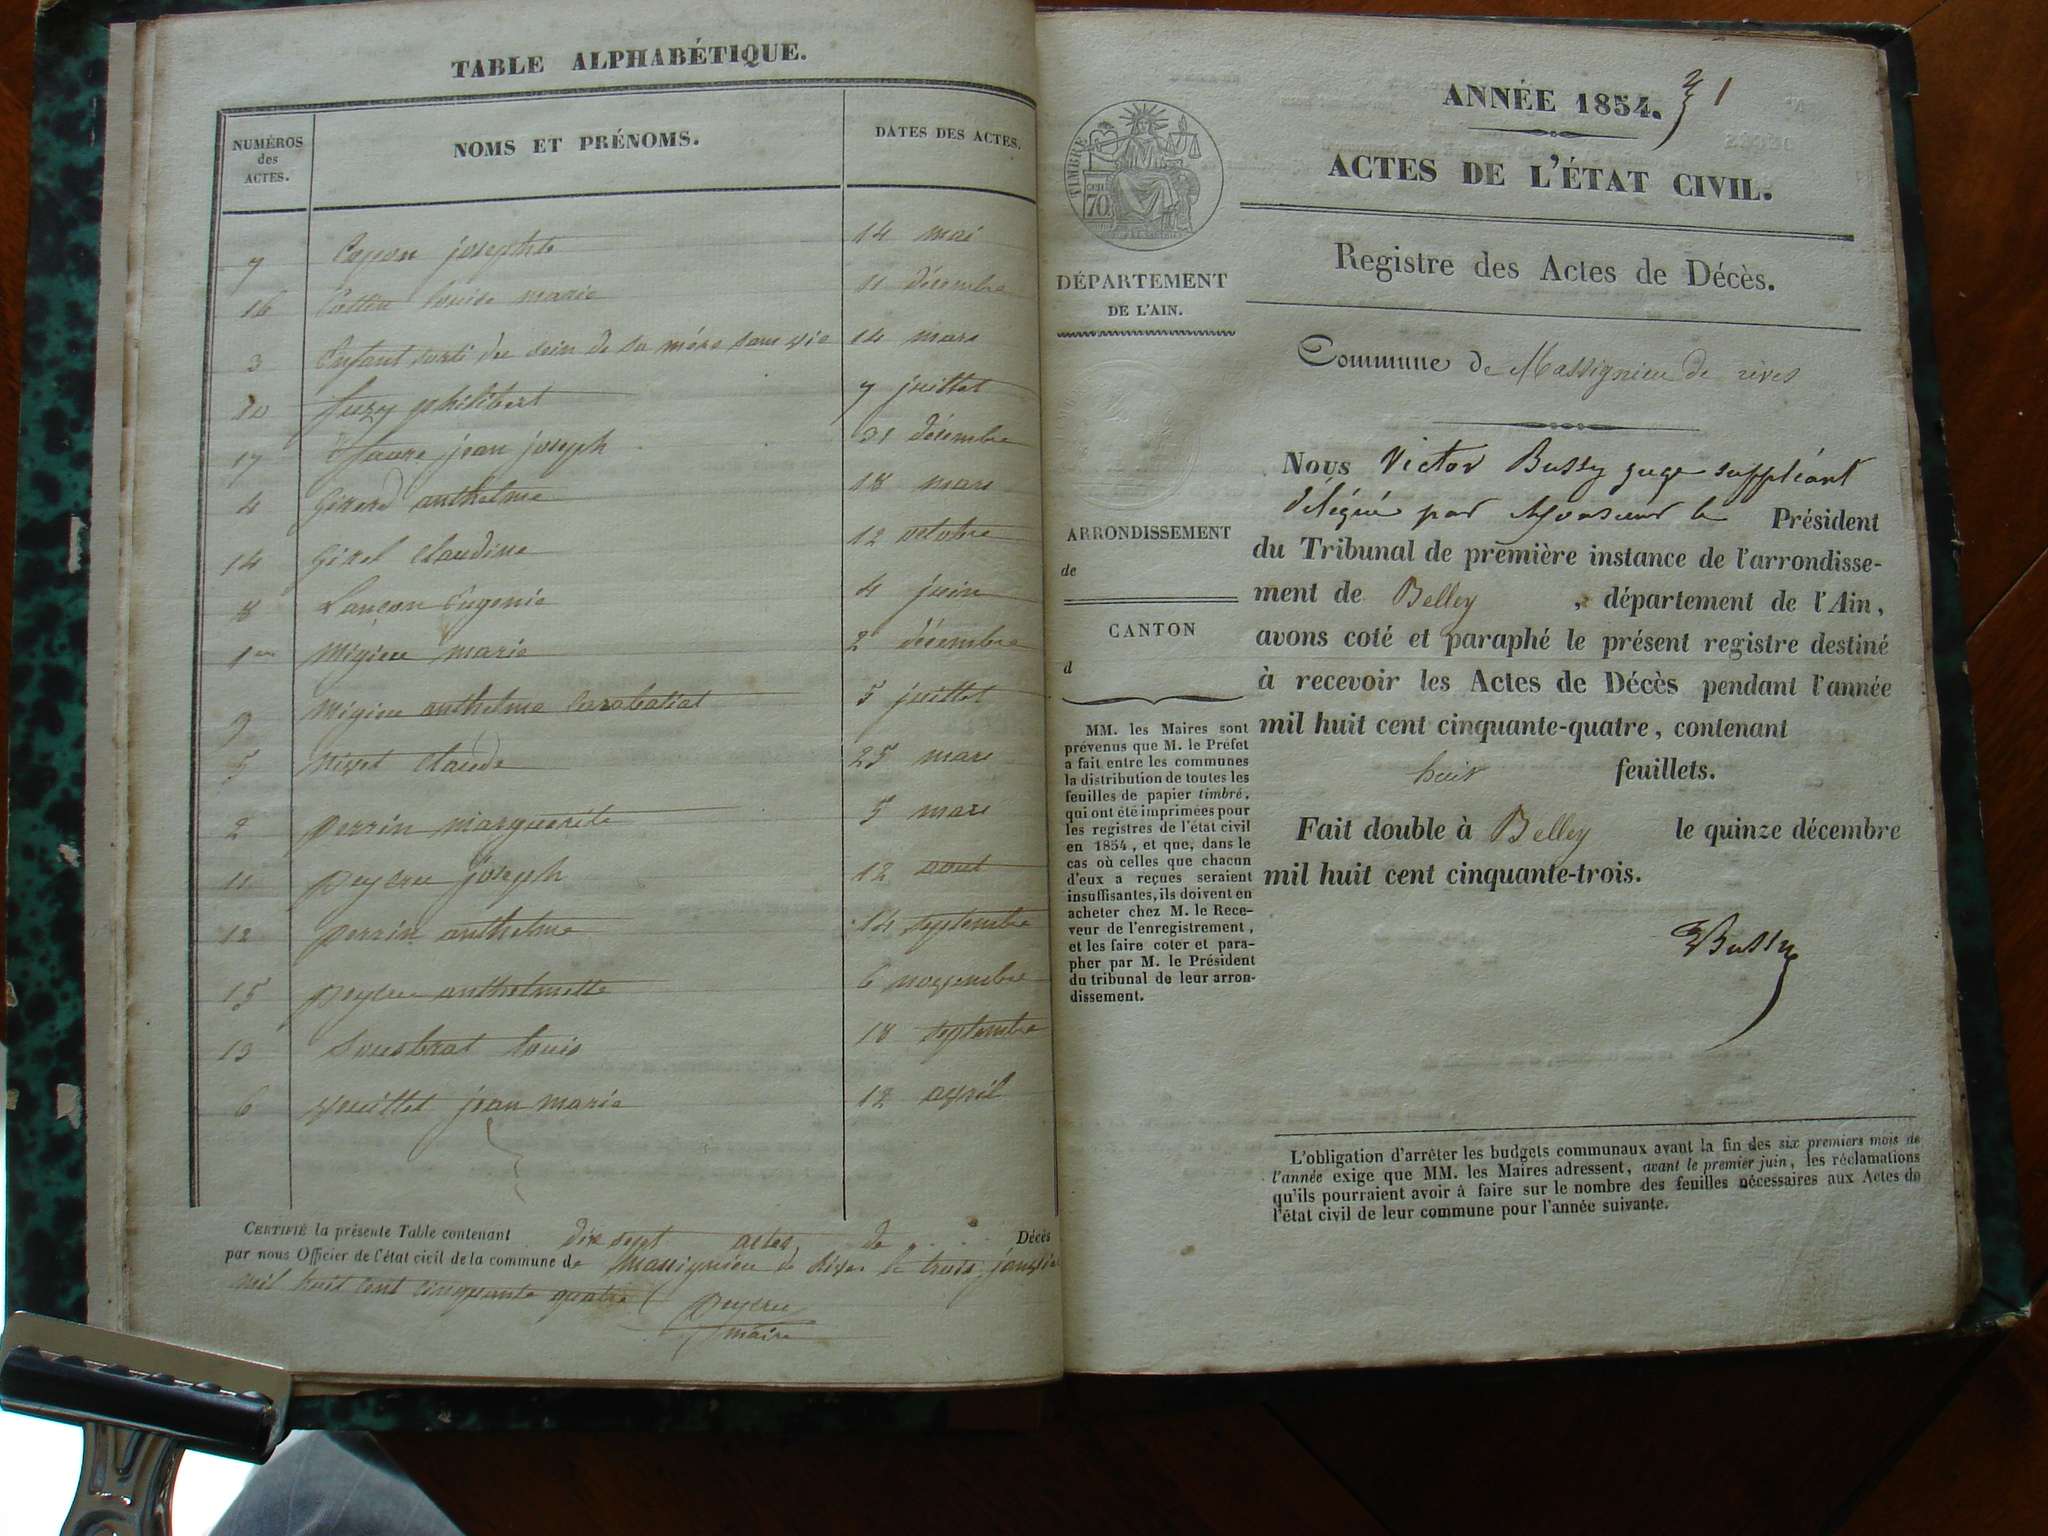 TABLE ALPHABÉTIQUE.
NUMÉROS des ACTES. NOMS ET PRÉNOMS. DATES DES ACTES.
7 josephte 14 mai
16 Cottin Louise marie 11 décembre
3 Enfant sorti du sein de sa mére sans vie 14 mars
10 philibert 7 juillet
17 faure jean joseph 31 décembre
4 Girerd anthelme 18 mars
14 Girel Claudine 12 octobre
8 Lançon Eugenie 4 juin
1er Migieu marie 2 décembre
9 Migieu anthelme 5 juillet
5 Nivet Claude 25 mars
2 perrin marguerite 5 mars
11 peycru joseph 12 aout
12 perrin anthelme 14 septembre
15 peycru anthelmette 6 novembre
13 Sousbrat Louis 18 septembre
6 vuillet jean marie 12 avril
CERTIFIÉ la présente Table contenant dix sept actes de Décès
par nous Officier de l'état civil de la commune de Massignieu de Rives le trois janvier
mil huit cent cinquante quatre
peycru
maire
1
ANNÉE 1854.
ACTES DE L'ÉTAT CIVIL.
TIMBRE
CEN
70
Registre des Actes de Décès.
DÉPARTEMENT
DE L'AIN.
Commune de Massignieu de rives
Nous Victor Bussy juge suppléant
délégué par Monsieur le Président
ARRONDISSEMENT
de
du Tribunal de première instance de l'arrondisse-
ment de Belley , département de l'Ain,
CANTON
d
avons coté et paraphé le présent registre destiné
à recevoir les Actes de Décès pendant l'année
mil huit cent cinquante-quatre, contenant
huit feuillets.
Fait double à Belley le quinze décembre
mil huit cent cinquante-trois.
Bussy
MM. les Maires sont
prévenus que M. le Préfet
a fait entre les communes
la distribution de toutes les
feuilles de papier timbré,
qui ont été imprimées pour
les registres de l'état civil
en 1854, et que, dans le
cas où celles que chacun
d'eux a reçues seraient
insuffisantes, ils doivent en
acheter chez M. le Rece-
veur de l'enregistrement,
et les faire coter et para-
pher par M. le Président
du tribunal de leur arron-
dissement.
L'obligation d'arrêter les budgets communaux avant la fin des six premiers mois de
l'année exige que MM. les Maires adressent, avant le premier juin, les réclamations
qu'ils pourraient avoir à faire sur le nombre des feuilles nécessaires aux Actes de
l'état civil de leur commune pour l'année suivante.